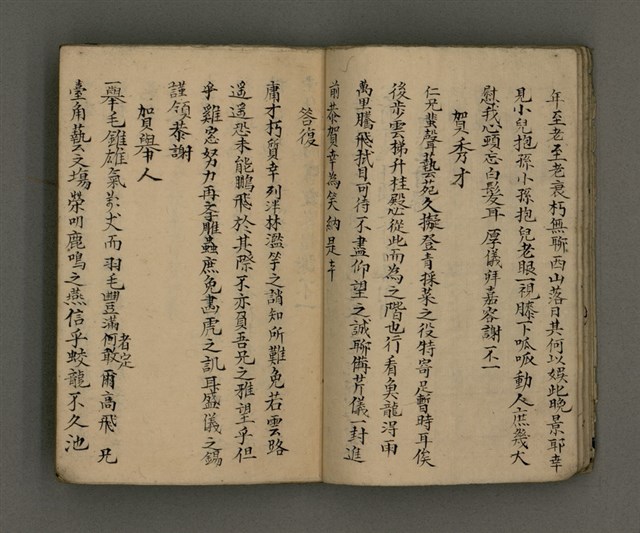 年至老至老衰朽無聊西山落日其何以娛此晚景耶幸
見小兒抱孫小孫抱兒老眼一視膝下呱呱動人庶幾大
慰我心頭忘白髮耳厚儀拜嘉容謝不一
賀秀才
仁兄蜚聲藝苑久擬登青採菜之役特寄足暫時耳俟
後步雲梯升桂殿從此而為之階也行看魚龍得雨
萬里騰飛拭目可待不盡仰望之誠聊備芹儀一封進
前恭賀幸為矣納是幸
答復
庸才朽質幸列泮林濫竽之誚知所難免若雲路
遥遥恐未能鵬飛於其際不亦負吾兄之雅望乎但
乎雞窓努力再荃雕蟲庶免畫虎之訊耳盛儀之錫
謹領恭謝
賀舉人
一舉毛錐雄氣萬丈而羽毛豐滿何敢爾高飛兄
者定
臺角藝之塲榮叨鹿鳴之燕信乎蛟龍不久池